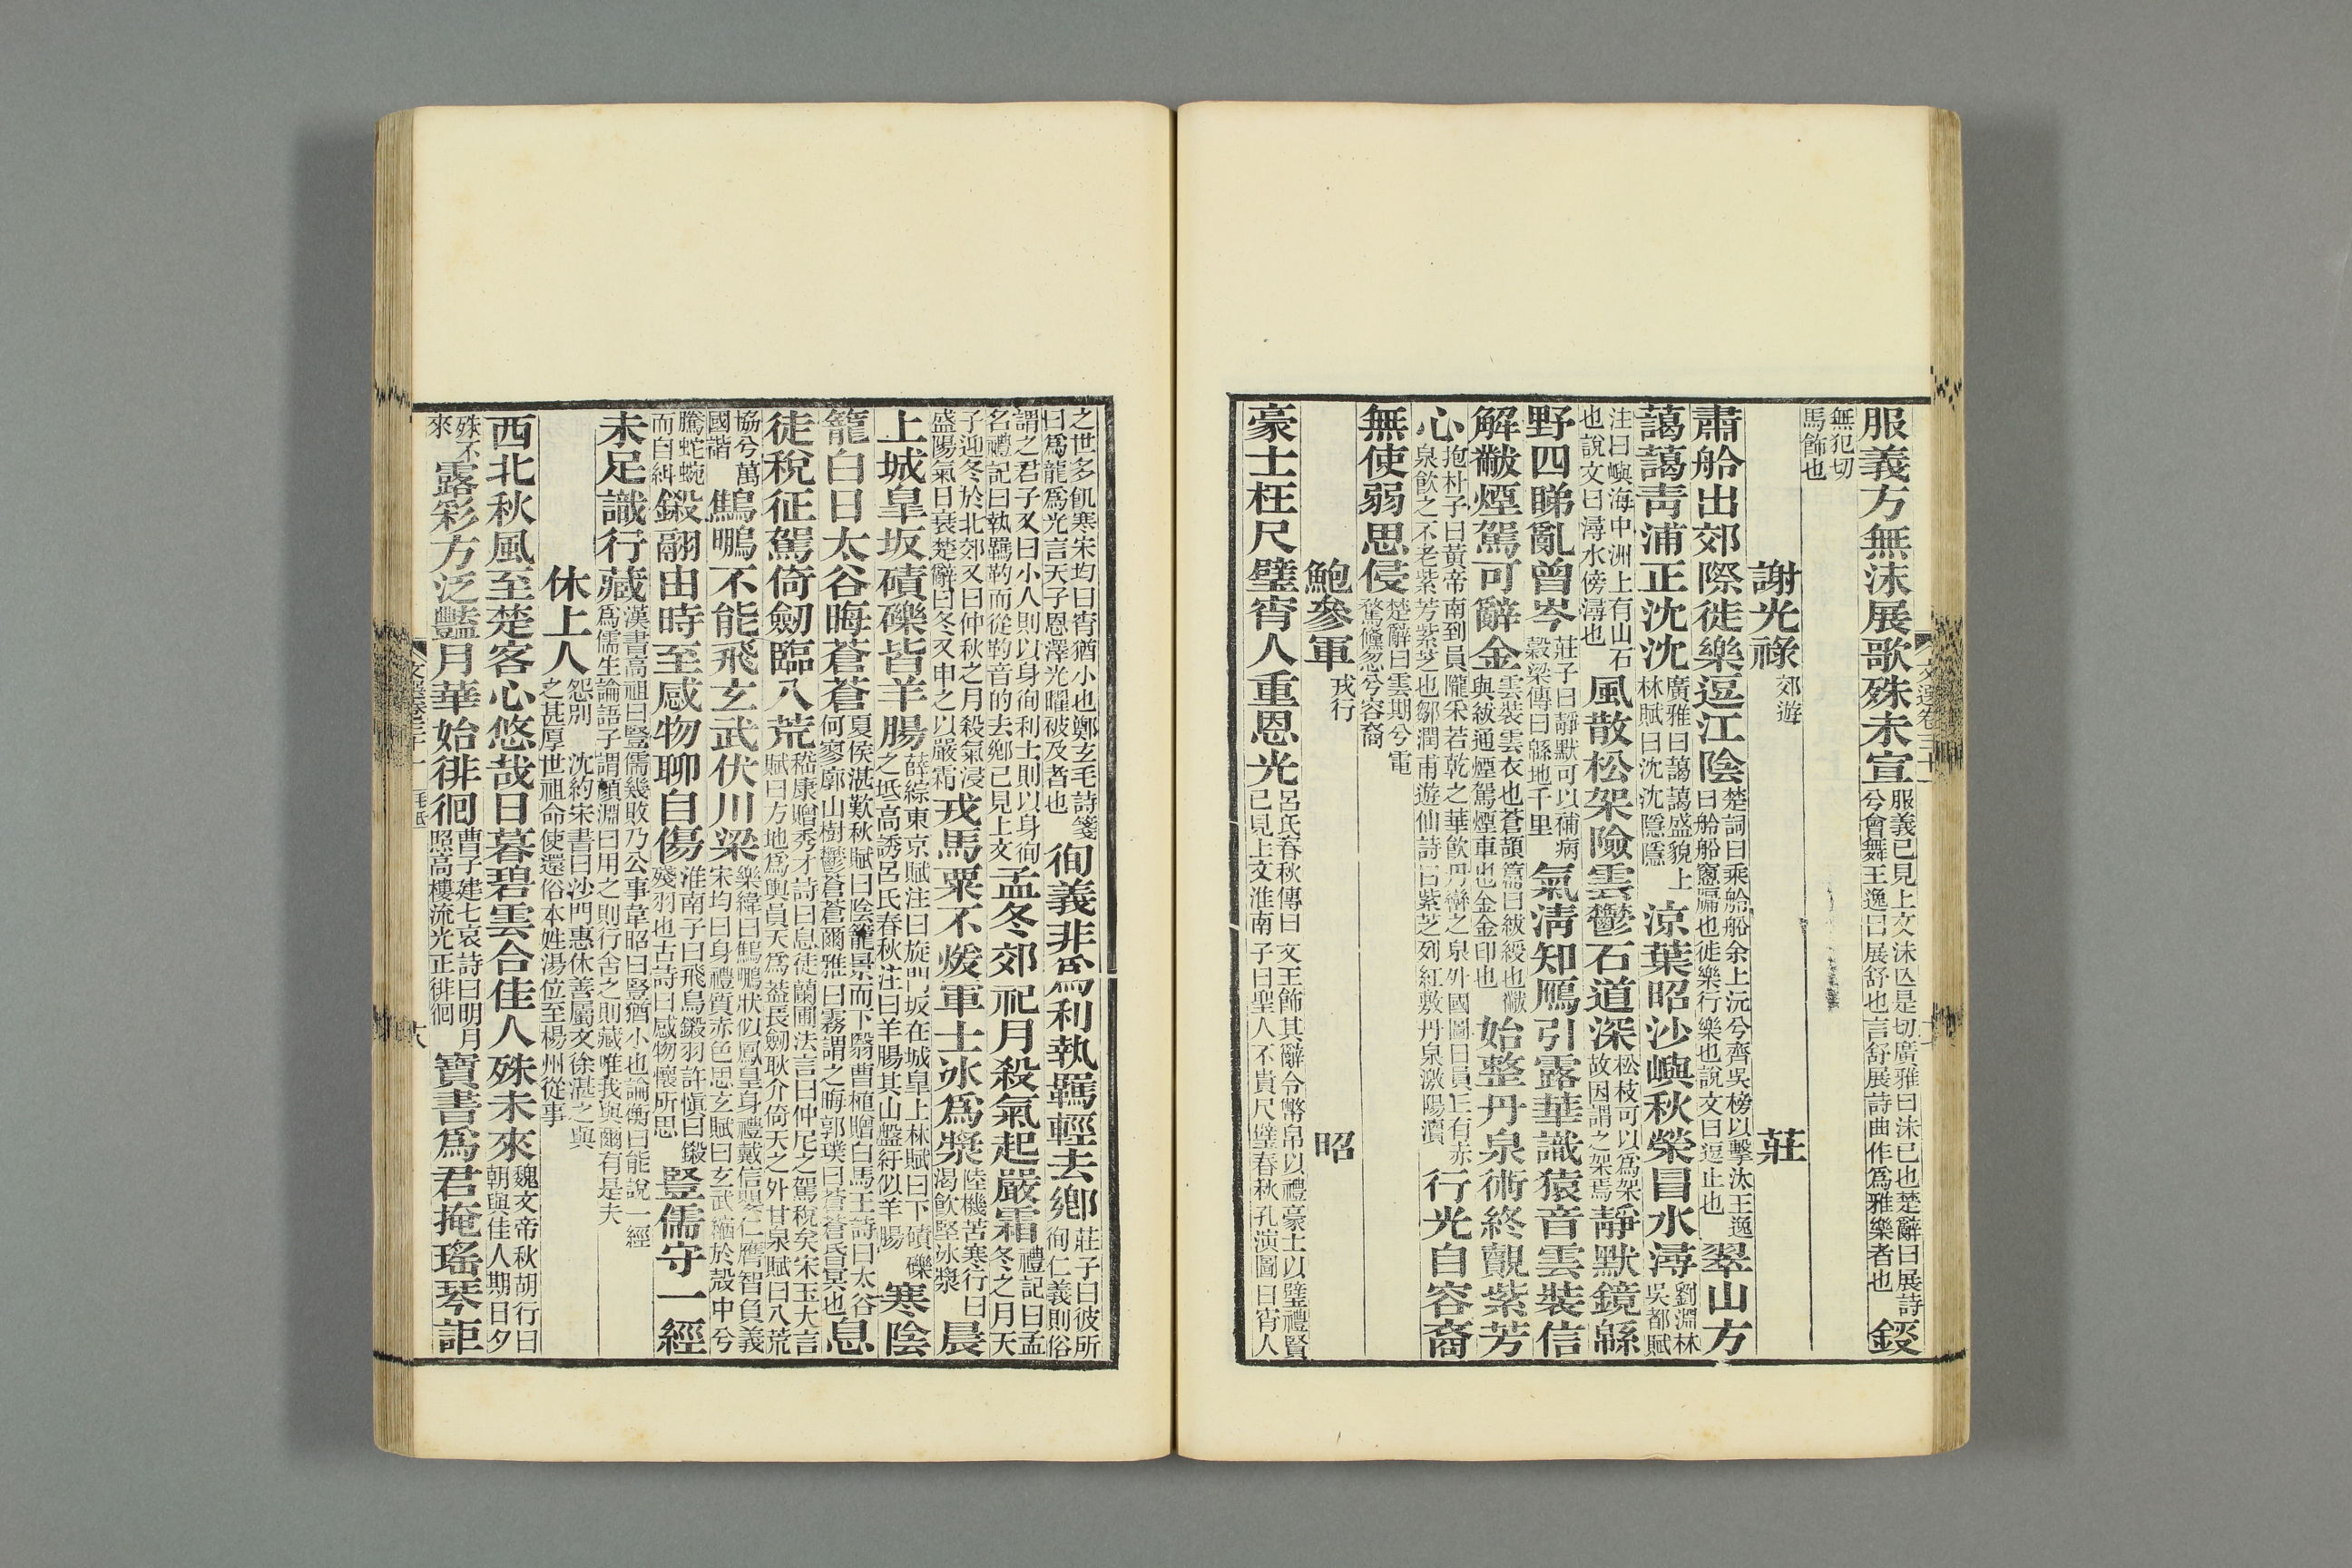 服義方無沫展歌殊未宣服義已見上文沫亡是切廣雅曰沫已也楚辭曰展詩兮會舞王逸曰展舒也言舒展詩曲作爲雅樂者也鋄
無犯切馬飾也
謝光祿郊遊莊
肅舲出郊際徙樂逗江陰楚詞曰乘舲船余上沅兮齊吳榜以擊汰王逸曰舲船船窻牖也徙樂行樂也說文曰逗止也翠山方
藹藹青浦正沈沈廣雅曰藹藹盛貌上林賦曰沈沈隱隱涼葉昭沙嶼秋榮冒水潯劉淵林吳都賦
注曰嶼海中洲上有山石也說文曰潯水傍潯也風散松架險雲鬱石道深松枝可以爲架故因謂之架焉靜默鏡緜
野四睇亂曾岑莊子曰靜默可以補病穀梁傳曰緜地千里氣清知鴈引露華識猿音雲裝信
解黻煙駕可辭金雲裝雲衣也蒼頡篇曰紱綬也黻與紱通煙駕煙車也金金印也始整丹泉術終覿紫芳
心抱朴子曰黃帝南到員隴采若乾之華飲丹巒之泉外國圖曰員丘有赤泉飲之不老紫芳紫芝也鄒潤甫遊仙詩曰紫芝列紅敷丹泉激陽瀆行光自容裔
無使弱思侵楚辭曰雲期兮電鶩儵忽兮容裔
鮑參軍戎行昭
豪士枉尺璧宵人重恩光呂氏春秋傳曰文王飾其辭令幣帛以禮豪士以璧禮賢已見上文淮南子曰聖人不貴尺璧春秋孔演圖曰宵人
文選卷三十一
之世多飢寒宋均曰宵猶小也鄭玄毛詩箋曰爲龍爲光言天子恩澤光曜被及者也徇義非爲利執羈輕去鄉莊子曰彼所徇仁義則俗
謂之君子又曰小人則以身徇利士則以身徇名禮記曰執羈靮而從靮音的去鄉已見上文孟冬郊祀月殺氣起嚴霜禮記曰孟冬之月天
子迎冬於北郊又曰仲秋之月殺氣浸盛陽氣日衰楚辭曰冬又申之以嚴霜戎馬粟不煖軍士冰爲漿陸機苦寒行曰渴飲堅冰漿晨
上城皐坂磧礫皆羊腸薛綜東京賦注曰旋門坂在城皐上林賦曰下磧礫之坻高誘呂氏春秋注曰羊腸其山盤紆似羊腸寒陰
籠白日太谷晦蒼蒼夏侯湛歎秋賦曰陰籠景而下翳曹植贈白馬王詩曰太谷何寥廓山樹鬱蒼蒼爾雅曰霧謂之晦郭璞曰蒼蒼昏冥也息
徒稅征駕倚劒臨八荒嵇康贈秀才詩曰息徒蘭圃法言曰仲尼之駕稅矣宋玉大言賦曰方地爲輿員天爲蓋長劒耿介倚天之外甘泉賦曰八荒
協兮萬國諧鷦鵬不能飛玄武伏川梁樂緯曰鷦鵬狀似鳳皇身禮戴信嬰仁膺智負義宋均曰身禮質赤色思玄賦曰玄武縮於殼中兮
騰蛇蜿而自糾鎩翮由時至感物聊自傷淮南子曰飛鳥鎩羽許愼曰鎩殘羽也古詩曰感物懷所思豎儒守一經
未足識行藏漢書高祖曰豎儒幾敗乃公事韋昭曰豎猶小也論衡曰能說一經爲儒生論語子謂顏淵曰用之則行舍之則藏唯我與爾有是夫
休上人怨別沈約宋書曰沙門惠休善屬文徐湛之與之甚厚世祖命使還俗本姓湯位至楊州從事
西北秋風至楚客心悠哉日暮碧雲合佳人殊未來魏文帝秋胡行曰朝與佳人期日夕
殊不來露彩方泛豔月華始徘徊曹子建七哀詩曰明月照高樓流光正徘徊寶書爲君掩瑤琴詎
文選卷三十一